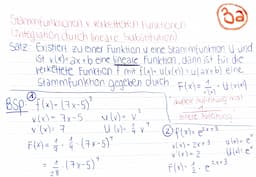 3a
Stammfunktionen v. verketteten Funktionen
(Integration durch lineare Substitution)
Satz: Existiert zu einer Funktion u eine Stammfunktion U und
ist v(x)=ax+b eine lineare Funktion, dann ist für die
verkettete Funktion f mit f(x)=u(v(x))=u(ax+b) eine
Stammfunktion gegeben durch F(x)=1/a · U(v(x))
BSP: ① f(x)=(7x-5)³
v(x)=7x-5 u(v)=v³
v(x)=7 U(v)=1/4 v⁴
F(x)=1/7 · 1/4 · (7x-5)⁴
=1/28 · (7x-5)⁴
② f(x)=e^(2x+3)
v(x)=2x+3 u(v)=e^v
v(x)=2 U(v)=e^v
F(x)=1/2 · e^(2x+3)